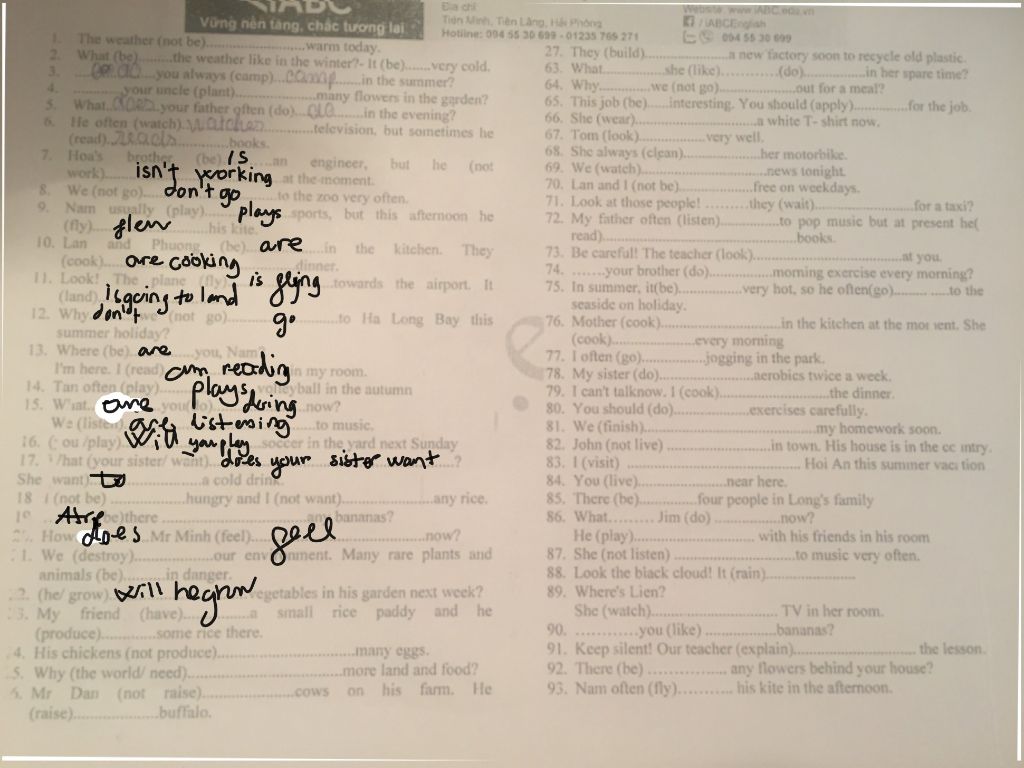 iABC
Vững nền tảng, chắc tương lai
Địa chỉ:
Tiên Minh, Tiên Lãng, Hải Phòng
Hotline: 094 55 30 699 - 01235 769 271
Website: www.iABC.edu.vn
/ iABCEnglish
094 55 30 699
1. The weather (not be)..........................warm today.
2. What (be)..........the weather like in the winter?- It (be)......very cold.
3. do you always (camp) camp in the summer?
4. ............your uncle (plant)....................many flowers in the garden?
5. What does your father often (do) do in the evening?
6. He often (watch) watches television, but sometimes he
(read) reads books.
7. Hoa's brother (be) is an engineer, but he (not
work) isn't working at the moment.
8. We (not go) don't go to the zoo very often.
9. Nam usually (play) plays sports, but this afternoon he
(fly) flew his kite.
10. Lan and Phuong (be) are in the kitchen. They
(cook) are cooking dinner.
11. Look! The plane (fly) is flying towards the airport. It
(land) is going to land
12. Why don't we (not go) go to Ha Long Bay this
summer holiday?
13. Where (be) are you, Nam?
I'm here. I (read) am reading in my room.
14. Tan often (play) plays volleyball in the autumn
15. What are you (do) doing now?
We (listen) are listening to music.
16. (you /play) Will you play soccer in the yard next Sunday
17. What (your sister/ want) does your sister want ?
She want) to a cold drink.
18 I (not be) ..............hungry and I (not want)....................any rice.
(be)there .......................any bananas?
How does Mr Minh (feel) feel now?
1. We (destroy)................our environment. Many rare plants and
animals (be)..........in danger.
2. (he/ grow) will he grow vegetables in his garden next week?
3. My friend (have)............a small rice paddy and he
(produce)............some rice there.
4. His chickens (not produce)......................many eggs.
5. Why (the world/ need)..............................more land and food?
Mr Dan (not raise)..................cows on his farm. He
(raise)...............buffalo.
27. They (build)..................a new factory soon to recycle old plastic.
63. What............she (like).............(do).............in her spare time?
64. Why............we (not go)....................out for a meal?
65. This job (be)......interesting. You should (apply)............for the job.
66. She (wear)..........................a white T- shirt now.
67. Tom (look)...............very well.
68. She always (clean)..................her motorbike.
69. We (watch).........................news tonight.
70. Lan and I (not be)..................free on weekdays.
71. Look at those people! .........they (wait).........................for a taxi?
72. My father often (listen)..............to pop music but at present he(
read)...........................................books.
73. Be careful! The teacher (look).............................at you.
74. .......your brother (do)..............morning exercise every morning?
75. In summer, it(be)..............very hot, so he often(go)...........to the
seaside on holiday.
76. Mother (cook)..........................in the kitchen at the moment. She
(cook)...................every morning
77. I often (go)..............jogging in the park.
78. My sister (do)...............aerobics twice a week.
79. I can't talknow. I (cook)........................the dinner.
80. You should (do)................exercises carefully.
81. We (finish)....................................my homework soon.
82. John (not live) ........................in town. His house is in the country.
83. I (visit) ............................... Hoi An this summer vacation
84. You (live)................near here.
85. There (be).............four people in Long's family
86. What........ Jim (do) ..............now?
He (play)........................ with his friends in his room
87. She (not listen) .........................to music very often.
88. Look the black cloud! It (rain)....................
89. Where's Lien?
She (watch)........................ TV in her room.
90. ............you (like) ................bananas?
91. Keep silent! Our teacher (explain)........................ the lesson.
92. There (be) ................. any flowers behind your house?
93. Nam often (fly)............. his kite in the afternoon.